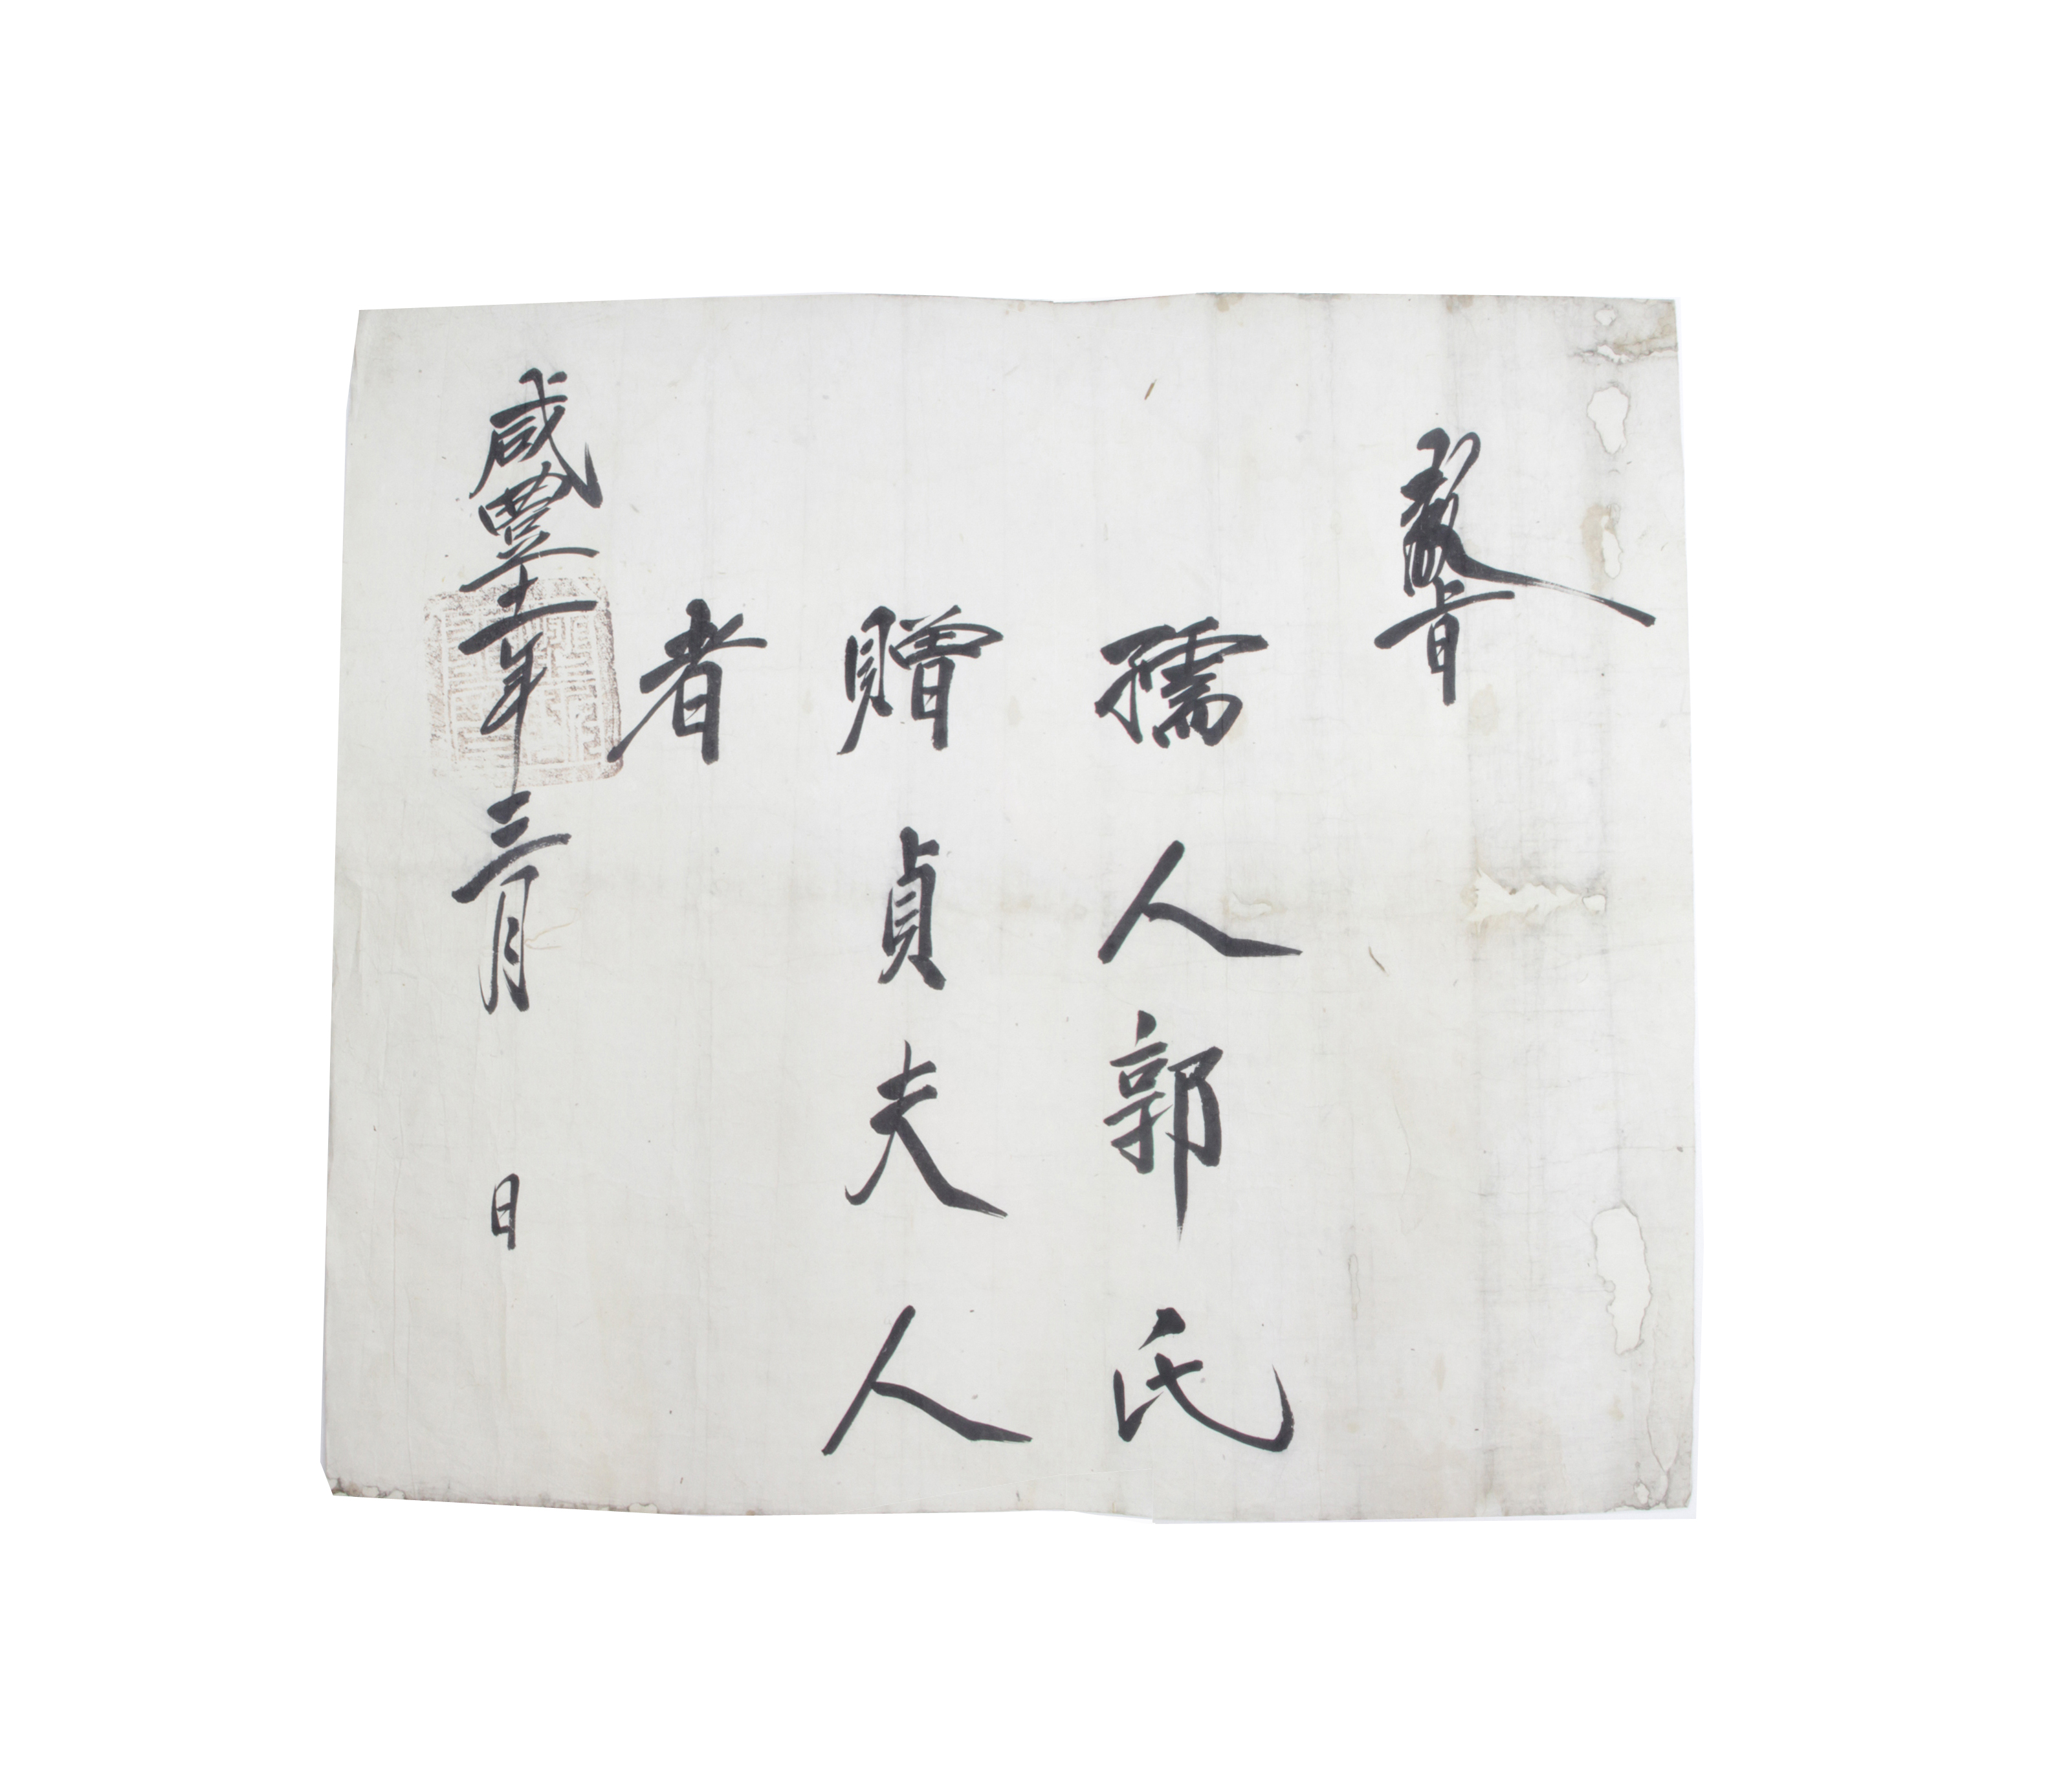 敎旨
孺人郭氏
贈貞夫人
者
咸豐十一年三月 日